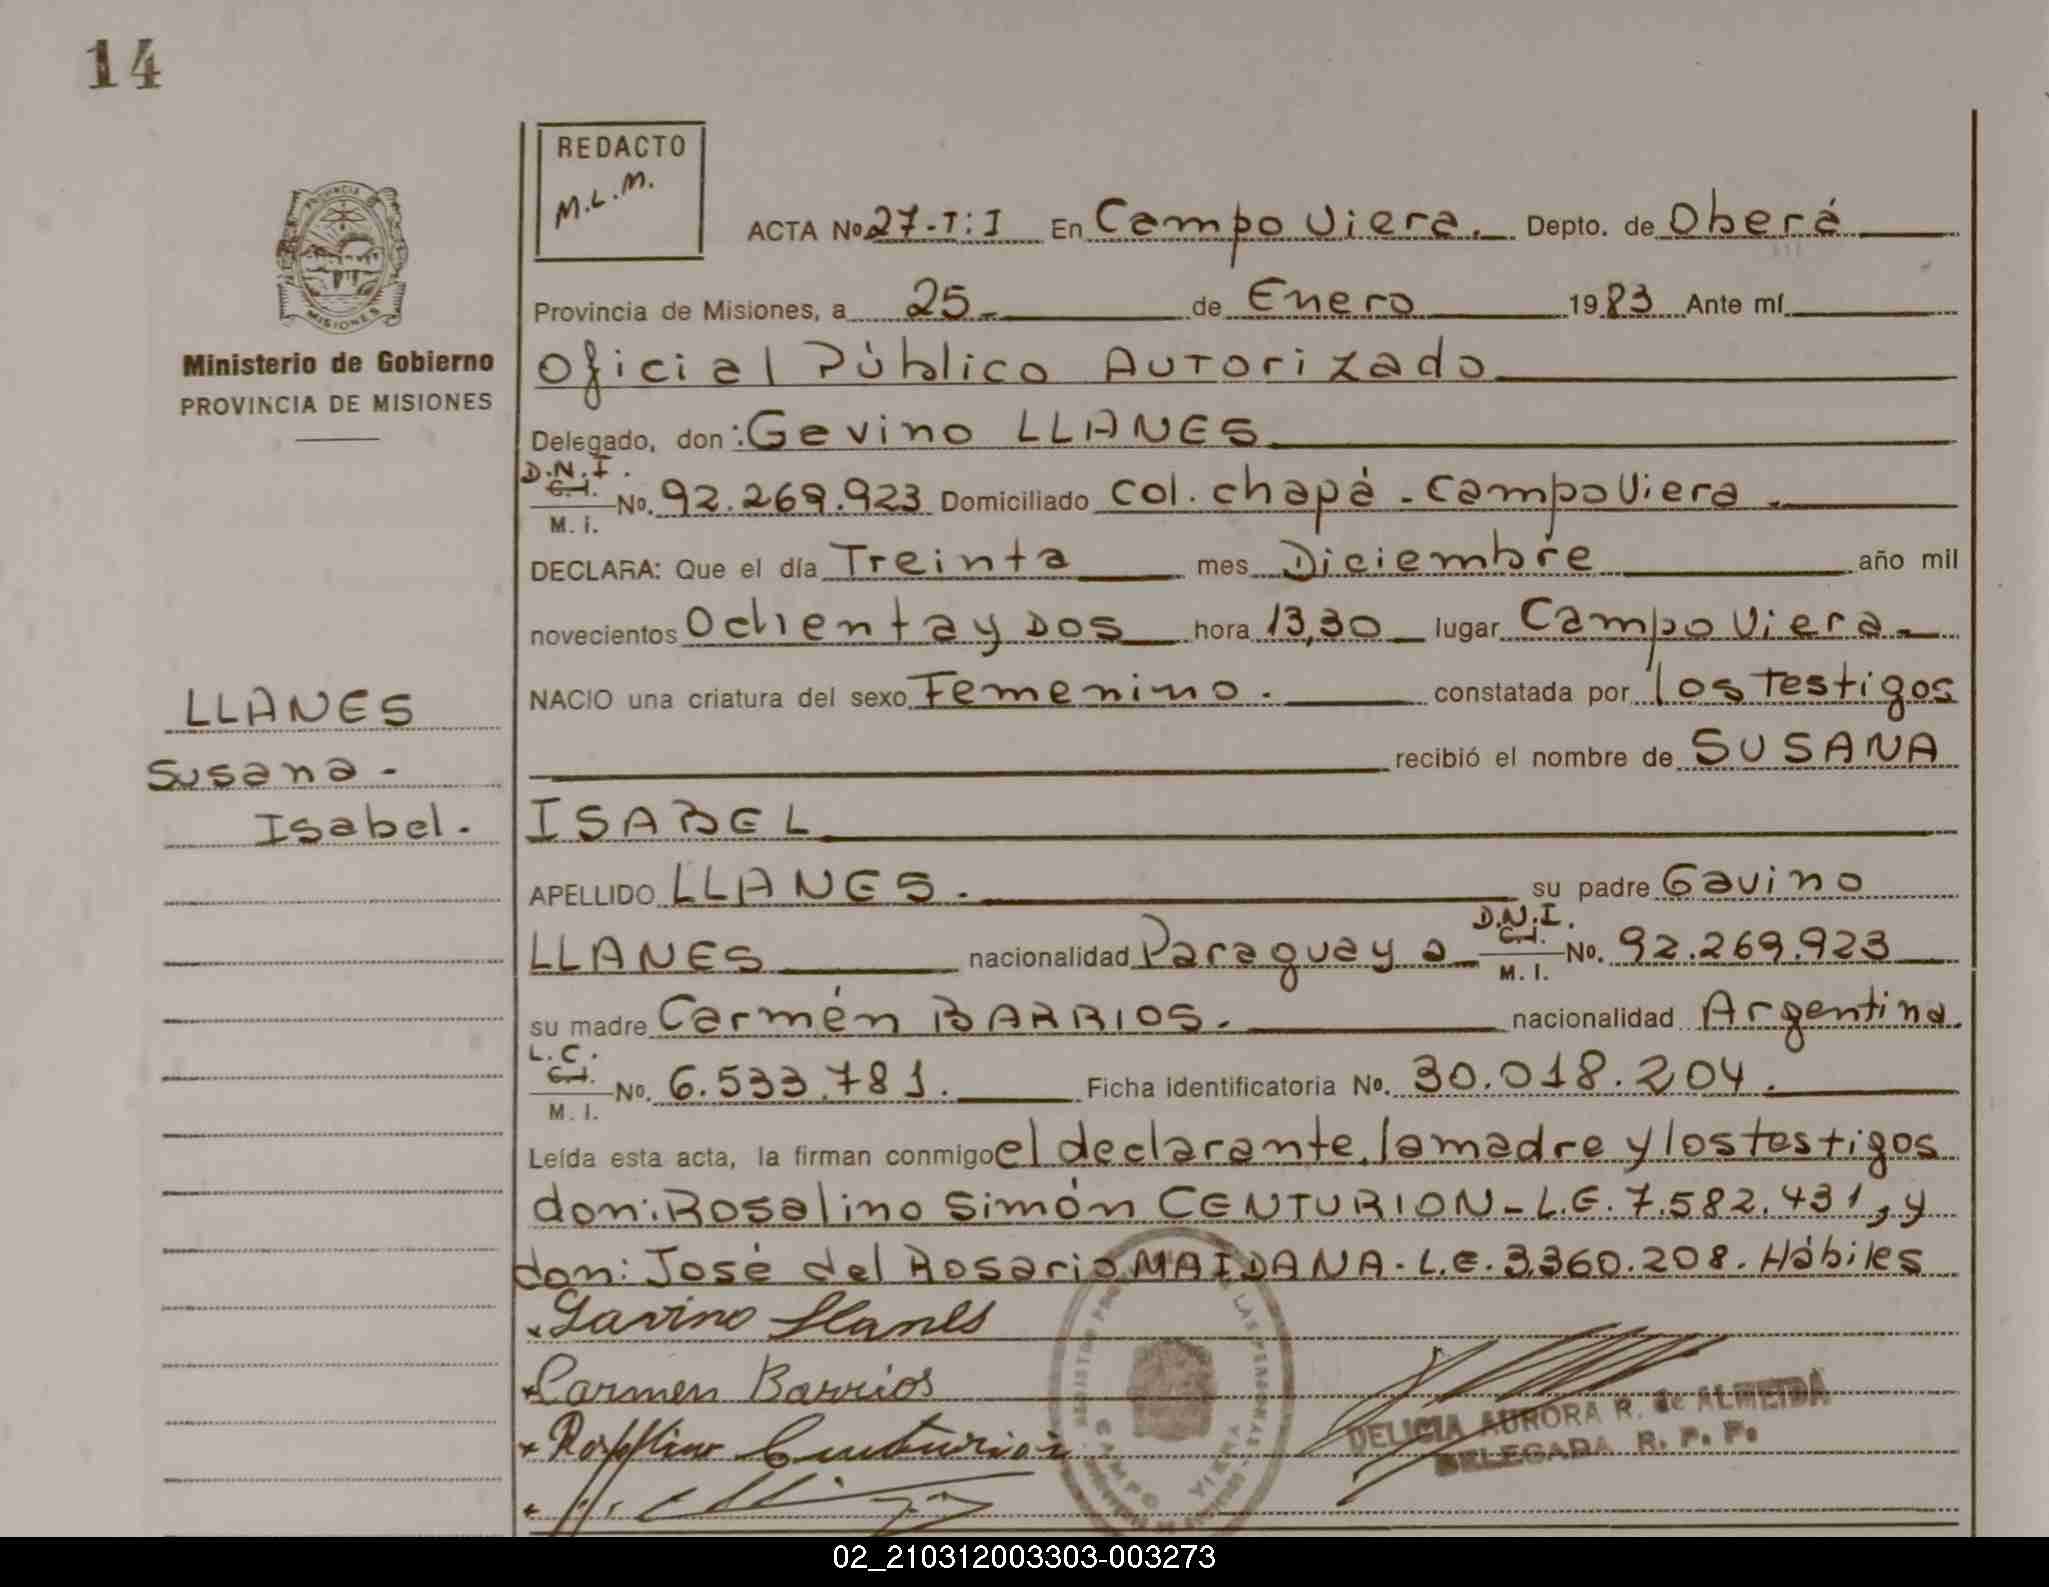 14
REDACTO
M.L.M.
ACTA No 27-T:I En Campo Viera. Depto. de Oberá
PROVINCIA DE
MISIONES
Provincia de Misiones, a 25 de Enero 1983 Ante mí
Ministerio de Gobierno
PROVINCIA DE MISIONES
Oficial Público Autorizado
Delegado, don: Gavino LLANES
D.N.I.
C.I.
M. I.
No. 92.269.923 Domiciliado Col. chapá - Campo Viera.
DECLARA: Que el día Treinta mes Diciembre año mil
novecientos Ochenta y DOS hora 13,30 lugar Campo Viera
NACIO una criatura del sexo Femenino. constatada por los testigos
recibió el nombre de SUSANA
ISABEL
LLANES
Susana -
Isabel.
APELLIDO LLANES. su padre Gavino
LLANES nacionalidad Paraguaya D.N.I. C.I. M. I. No. 92.269.923
su madre Carmén BARRIOS. nacionalidad Argentina.
L.C.
C.I.
M. I.
No. 6.533.781. Ficha identificatoria No. 30.018.204.
Leída esta acta, la firman conmigo el declarante, la madre y los testigos
don: Rosalino Simón CENTURION - L.E. 7.582.431, y
don: José del Rosario MAIDANA. L.E. 3.360.208. Hábiles
Gavino Llanes
Carmen Barrios
Rosalino Centurion
REGISTRO DE LAS PERSONAS
CAMPO VIERA
DELICIA AURORA R. de ALMEIDA
DELEGADA R. P. P.
02_210312003303-003273